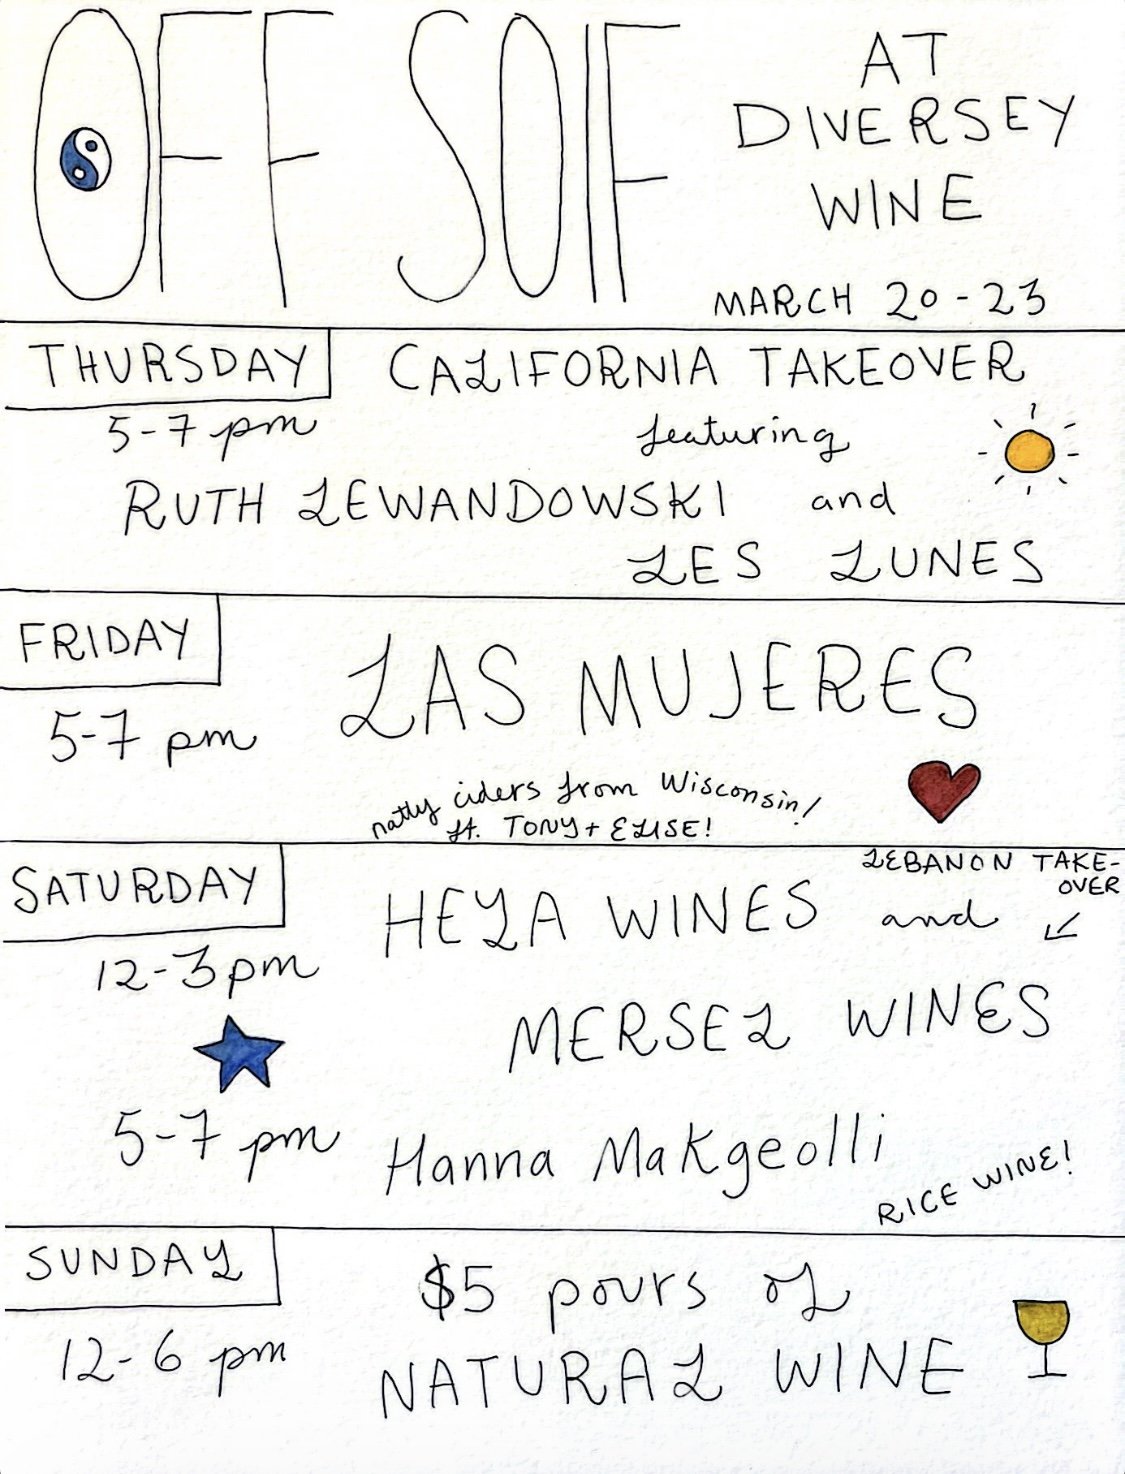 OFF SOIF
AT
DIVERSEY
WINE
MARCH 20-23
THURSDAY
5-7 pm
CALIFORNIA TAKEOVER
featuring
RUTH LEWANDOWSKI and
LES LUNES
FRIDAY
5-7 pm
LAS MUJERES
natty ciders from Wisconsin!
ft. TONY + ELISE!
SATURDAY
12-3pm
HEYA WINES and
LEBANON TAKE-
OVER
MERSEL WINES
5-7 pm
Hanna Makgeolli
RICE WINE!
SUNDAY
12-6 pm
$5 pours of
NATURAL WINE